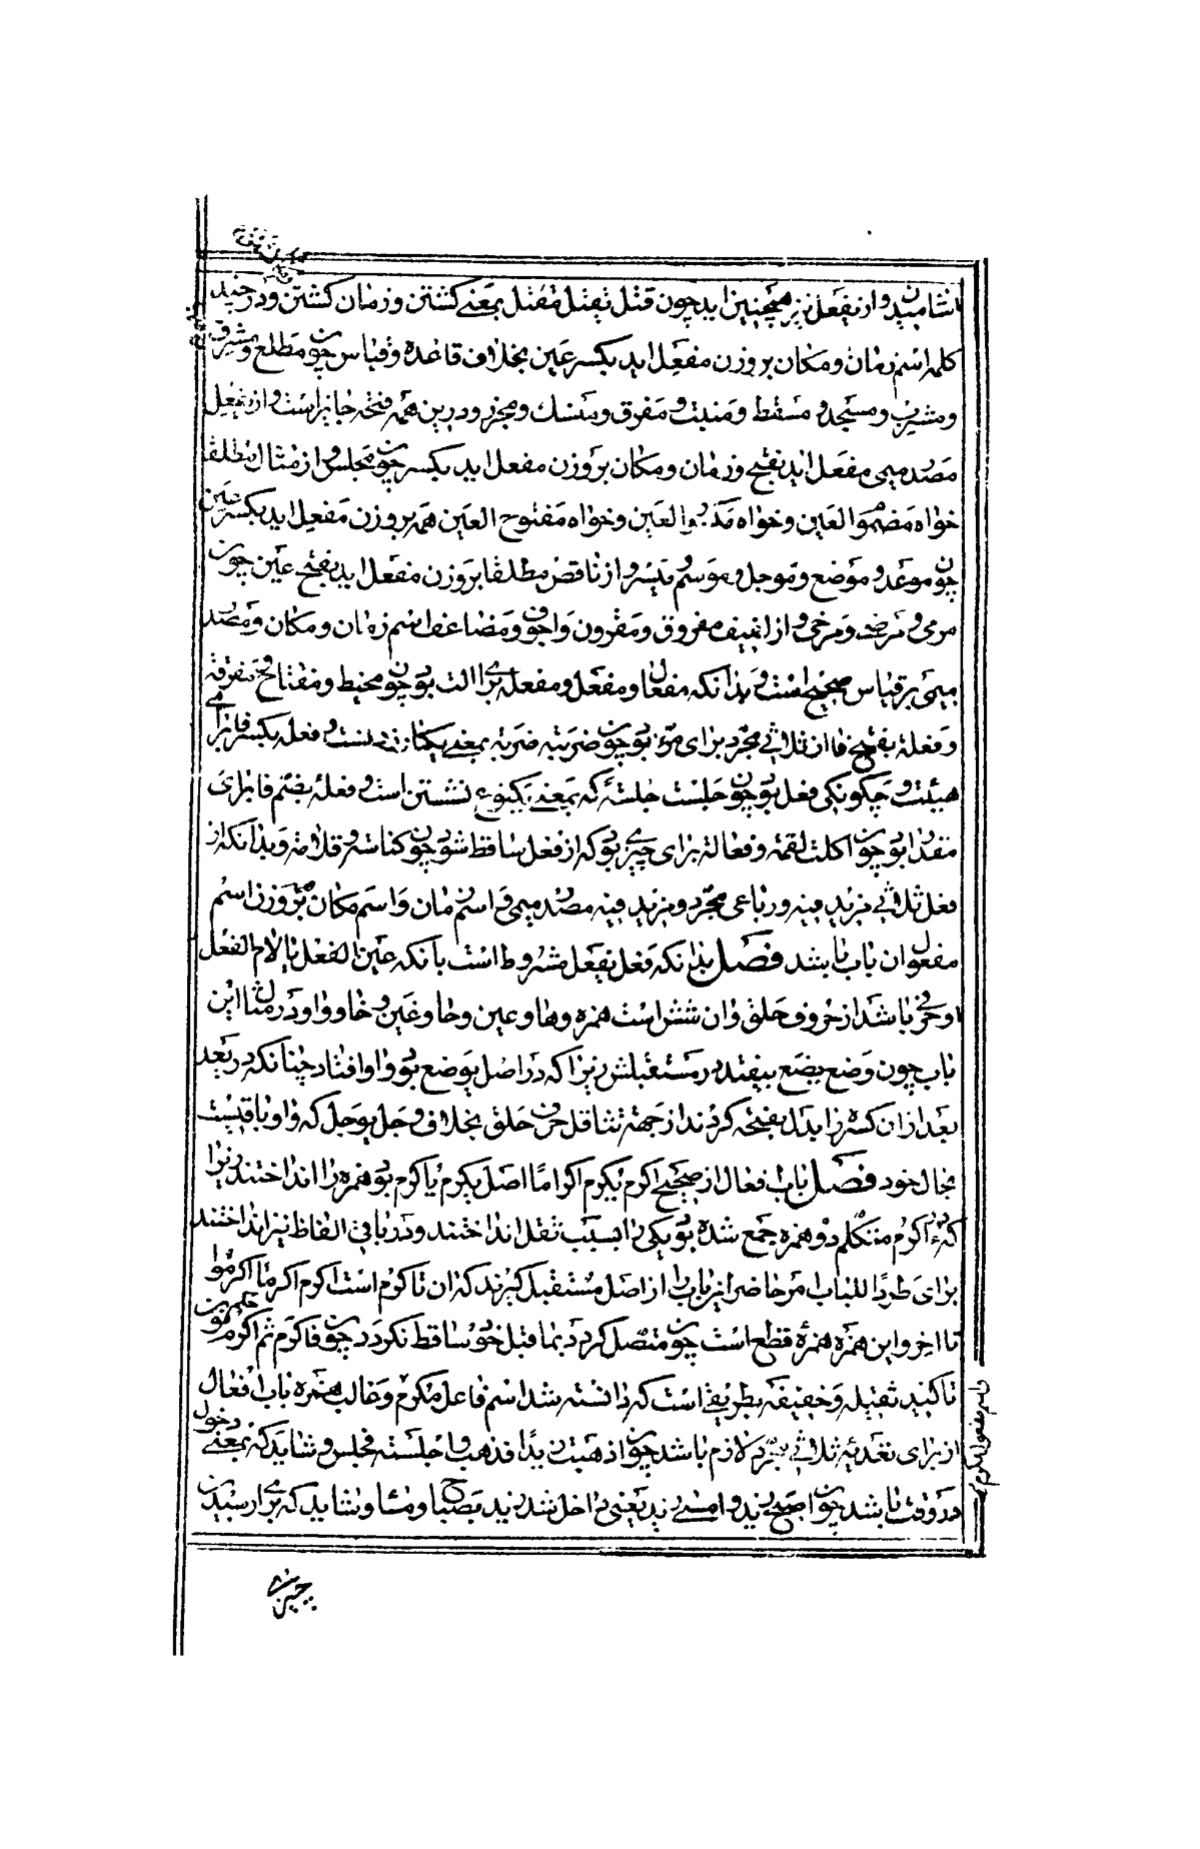 اشامیدن و از یفعل نیز همچنین اید چون قتل یقتل مقتل بمعنی کشتن و زمان کشتن و در چند
کلمه اسم زمان و مکان بر وزن مفعل اید بکسر عین بخلاف قاعده و قیاس چون مطلع و مشرق
و مغرب و مسجد و مسقط و منبت و مفرق و منسک و مجزر و درین همه فتحه جایز است و از یفعل
مصدر میمی مفعل اید بفتح و زمان و مکان بر وزن مفعل اید بکسر چون مجلس و از مثال مطلقا
خواه مضموم العین و خواه العین و خواه مفتوح العین همه بر وزن مفعل اید بکسر عین
چون موعد و موضع و موجل و موسم و میسر و از ناقص مطلقا بر وزن مفعل اید بفتح عین چون
مرمی و مرضی و مرخی و از لفیف مفروق و مقرون و اجوف و مضاعف اسم زمان و مکان و مصدر
میمی بر قیاس صحیح است و بدانکه مفعال و مفعل و مفعله برای الت بود چون مخیط و مفتاح و مفرقه
و فعلة بفتح فا از ثلاثی مجرد برای مره بود چون ضربته ضربة بمعنی یکبار زدن است و فعله بکسر فا برای
هیئت و چگونگی فعل بود چون جلست جلسة که بمعنی یکنوع نشستن است و فعلة بضم فا برای
مقدار بود چون اکلت لقمة و فعالة برای چیزی بود که از فعل ساقط شود چون کناسه و قلامه و بدانکه از
فعل ثلاثی مزید فیه و رباعی مجرد و مزید فیه مصدر میمی و اسم زمان و اسم مکان بر وزن اسم
مفعول ان باب باشد فصل بدانکه فعل یفعل مشروط است بانکه عین الفعل یا لام الفعل
او حرفی باشد از حروف حلق و ان شش است همزه و ها و عین و حا و غین و خا و واو در مثال این
باب چون وضع یضع بیفتد در مستقبلش زیرا که در اصل یوضع بود واو افتاد چنانکه در یعد
بعد از ان کسره را بدل بفتحه کردند از جهة تثاقل حرف حلق بخلاف وجل یوجل که واو باقیست
بحال خود فصل باب افعال از صحیح اکرم یکرم اکراما اصل یکرم یاکرم بود همزه را انداختند زیرا
که در ءاکرم متکلم دو همزه جمع شده بود یکی را بسبب ثقل انداختند و در باقی الفاظ نیز انداختند
برای طردا للباب امر حاضر این باب را از اصل مستقبل گیرند که ان تاکرم است اکرم اکرما اکرموا
تا اخر و این همزه همزه قطع است چون متصل کردد بما قبل خود ساقط نکردد چون فاکرم ثم اکرم
تاکید ثقیله و خفیفه بطریقی است که دانسته شد اسم فاعل مکرم و غالب همزه باب افعال
از برای تعدیه ثلاثی مجرد لازم باشد چون اذهبت زیدا فذهب و اجلسته فجلس و شاید که بمعنی دخول
در وقت باشد چون اصبح زید و امسی زید یعنی داخل شد زید بصباح و مسا و شاید که برای رسیدن